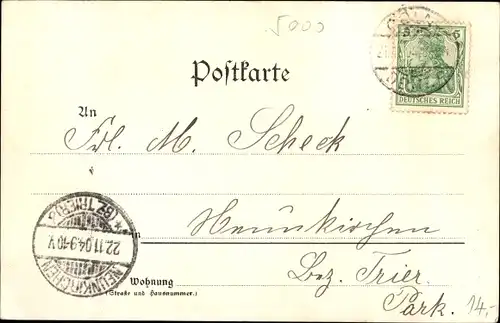 5000
CÖLN
5 5
DEUTSCHES REICH
Postkarte
An
Frl. M. Scheck
in Neunkirchen
Bez. Trier.
Park.
Wohnung
(Straße und Hausnummer.)
NEUNKIRCHEN
22.11.04.9-10V
* (BZ. TRIER) a
14,-